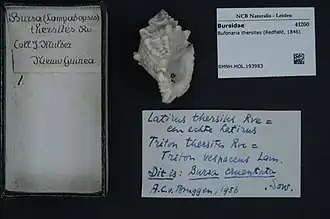 Bursa (Lampadopsis)
thersites Rv
Coll. J. Mulder
Nieuw Guinea
1.
NCB Naturalis - Leiden
Bursidae 41200
Bufonaria thersites (Redfield, 1846)
RMNH.MOL.193983
Latirus thersites Rve =
een echte Latirus
Triton thersites Rve =
Triton vespaceus Lam.
Dit is: Bursa cruentata
Sow.
A.C.v.Bruggen, 1956